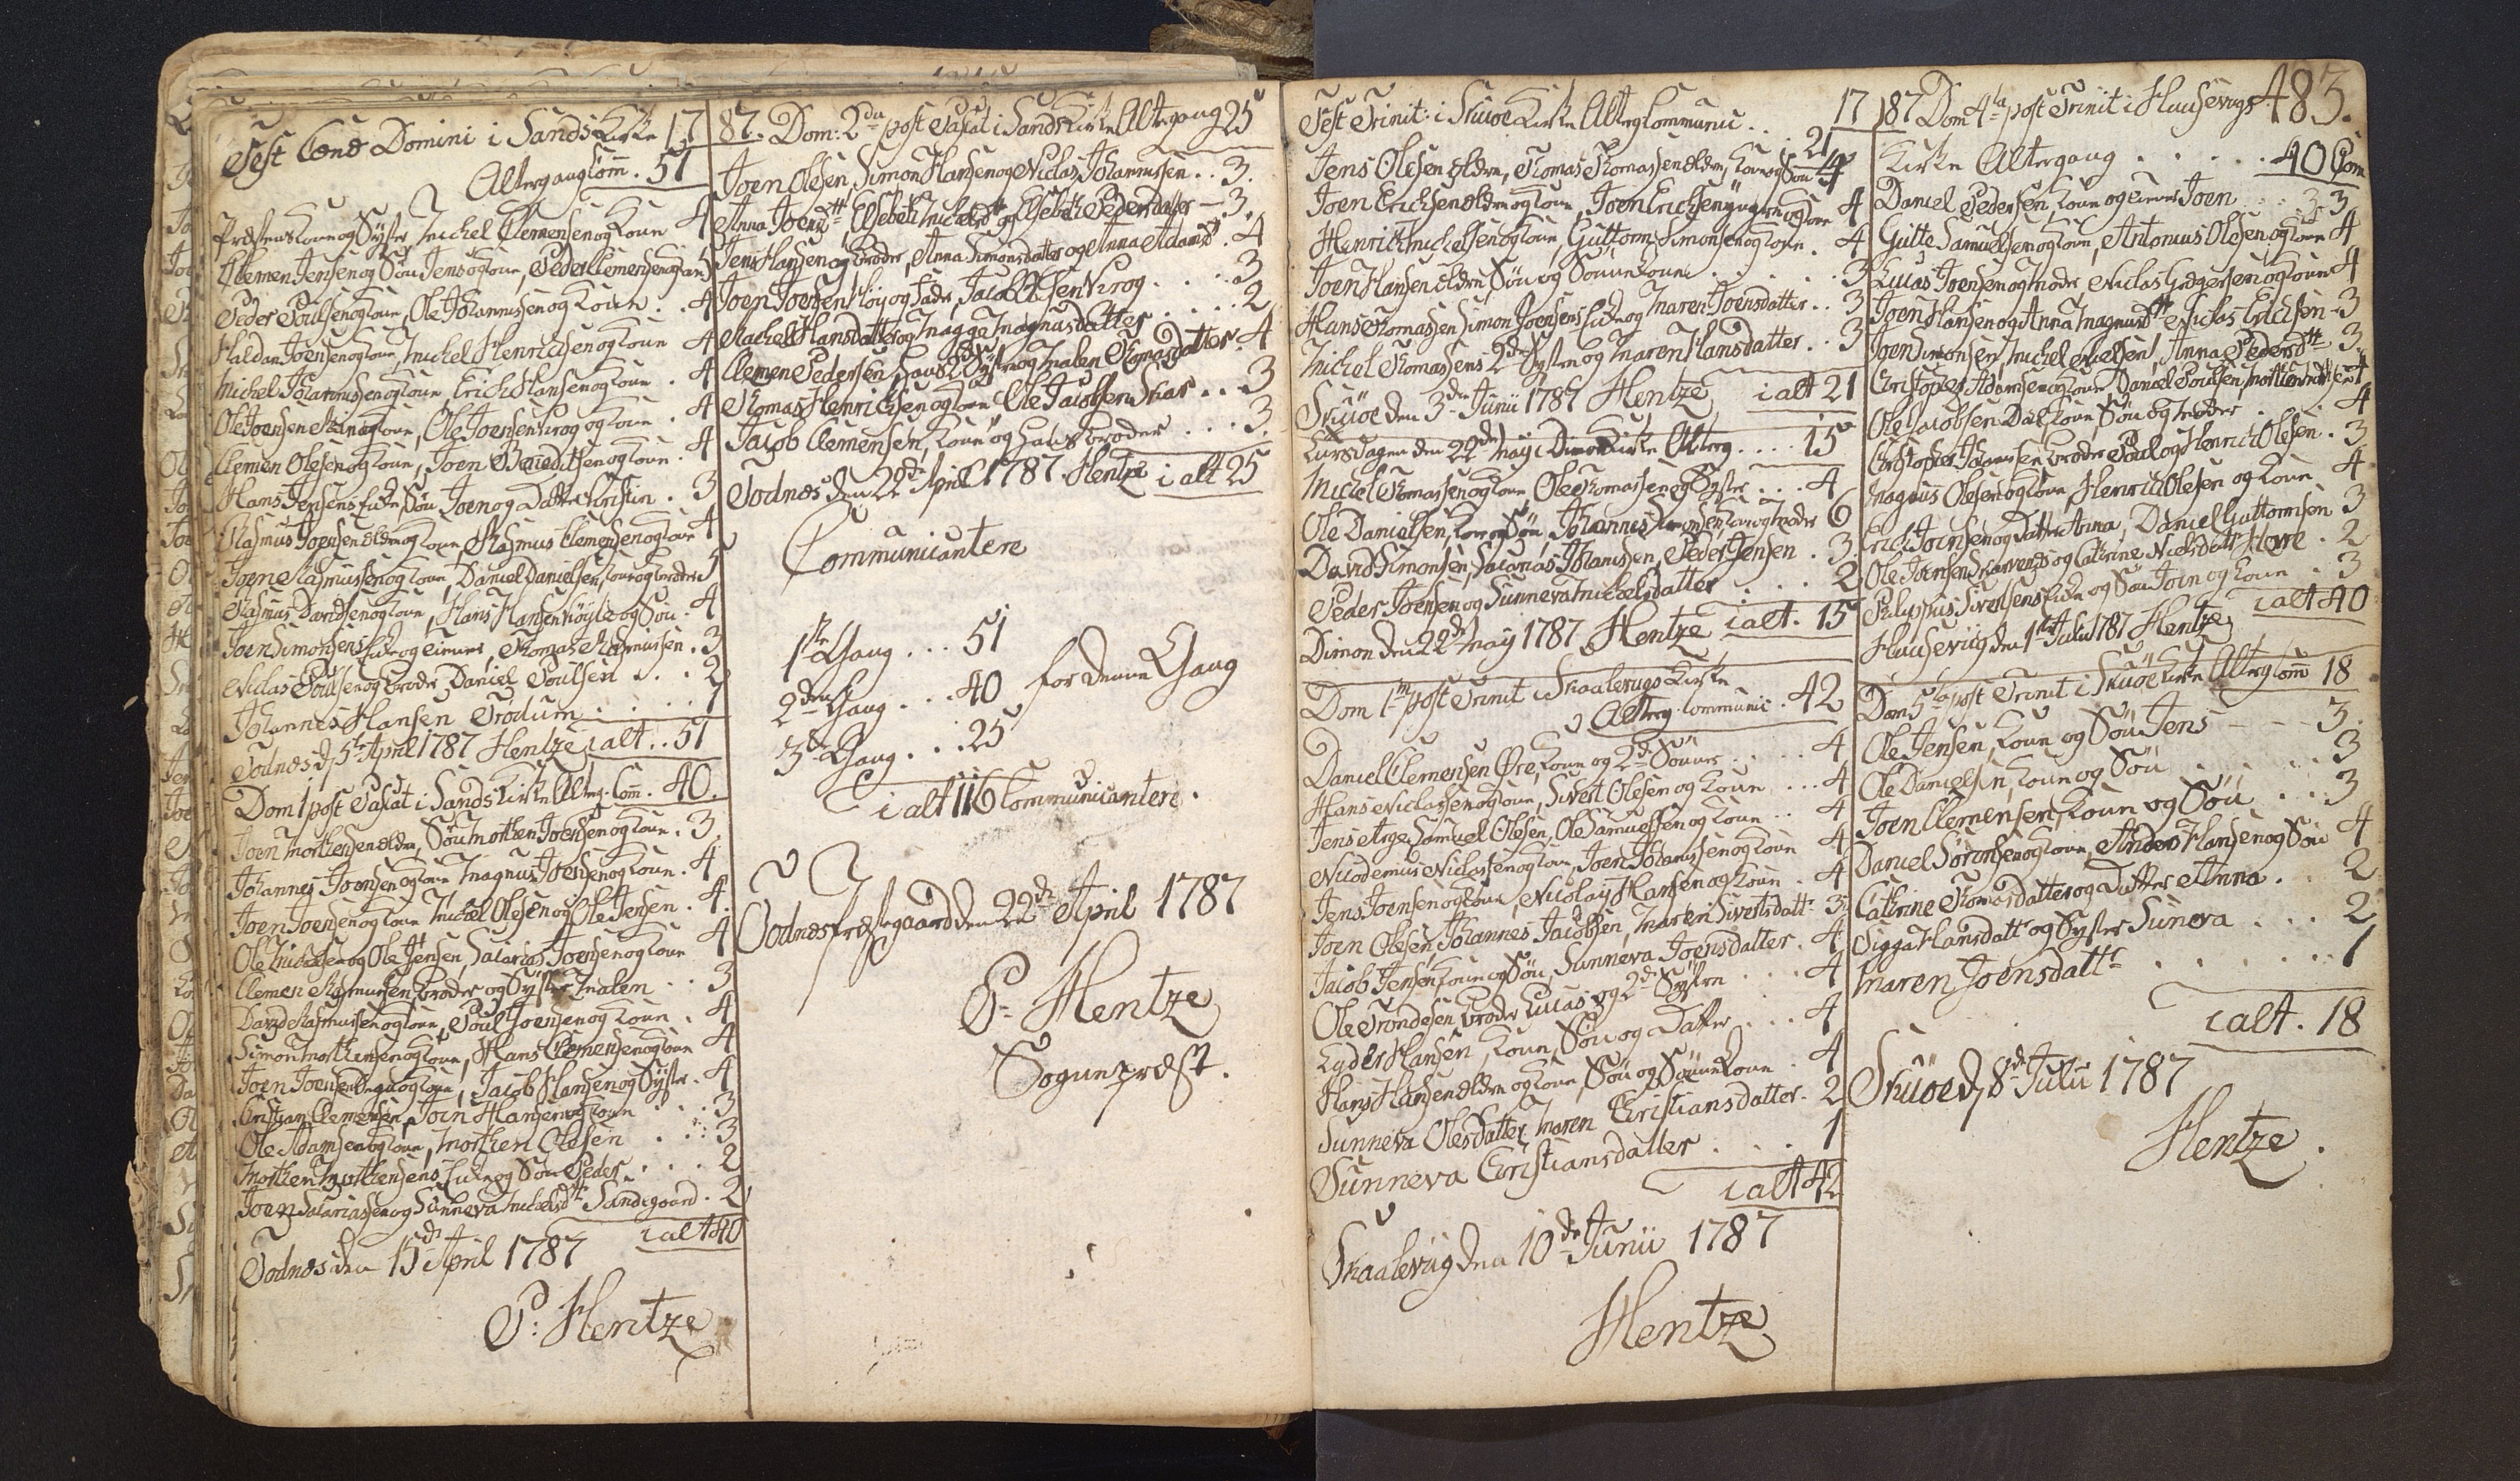 Fest Coenæ Domini i Sands Kirke 17
Alterganglom̄. 51
Præstens Kone og Syster, Michel Clemensen og Kone 4
Clemen Jensen og Søn Jens og Kone, Peder Clemensen og Kone 5
Peder Poulsen og Kone, Ole Johannesen og Kone . . 4
Haldan Joensen og Kone, Michel Henrichsen og Kone 4
Michel Johannesen og Kone Erich Hansen og Kone . 4
Ole Joensen og Kone, Ole Joensen Krog og Kone . 4
Clemen Olesen og Kone, Joen Benedictsen og Kone . 4
Hans Jensens Enke Søn Joen og Datter Kirstin . 3
Rasmus Joensen ældre og Kone, Rasmus Clemensen og Kone 4
Joen Rasmussen og Kone, Daniel Danielsen, Kone og broder 5
Rasmus Davidsen og Kone, Hans Hansen Høyle og Søn . 4
Joen Simonsens Enke og Tienner, Thomas Rasmussen . 3
Niclas Poulsen og broder Daniel Poulsen . . . 2
Johannes Hansen Trødum . . . . 1
Todnes d. 5te April 1787 Hentze i alt . . 51
Dom 1 post Pascat i Sands Kirke Alterg. Com̄. 40.
Joen Mortensen ældre, Søn Morten Joensen og Kone . 3
Johannes Joensen og Kone Magnus Joensen og Kone . 4
Joen Joensen og Kone Michel Olesen og Ole Jensen . 4
Ole Michelsen og Ole Jensen, Sacarias Joensen og Kone 4
Clemen Rasmussen, broder og Syster Malen . . 3
David Rasmussen og Kone, Poul Joensen og Kone . 4
Simon Mortensen og Kone, Hans Clemensen og Kone 4
Joen Joensen og Kone, Jacob Hansen og Syster . 4
Christian Clemensen, Joen Hansen og Kone . . . 3
Ole Adamsen og Kone, Morten Olesen . . : 3
Morten Mortensens Enke og Søn Peder . . . 2
Joen Sacariasen og Sunneva Michelsdtr Sandegaard . 2
i alt 40
Todnes den 15de April 1787
P: Hentze
87. Dom: 2da post Pascat i Sands Kirke Altergang 25
Joen Olesen, Simon Hansen og Niclas Johannesen . . 3.
Anna Joensdtt Elsebeth Michelsdtt og Elsebeth Pedersdatter — 3.
Jens Hansen og broder, Anna Simonsdatter og Anna Adamsd. . 4
Joen Joensen Høy og Fader, Jacob Olesen Krog . . . 3
Rachel Hansdatter og Magga Magnusdatter . . . . 2
Clemen Pedersen, hans 2de Systre og Malen Thomasdatter . 4
Thomas Henrichsen og Kone Ole Jacobsen Skar . . . 3
Jacob Clemensen, Kone og hans broder . . . 3.
Todnes den 22de April 1787 Hentze i alt 25
Communicantere
1ste Gang . . . 51
2den Gang . . . 40 for denne Gang
3de Gang . . . 25
i alt 116 Communicantere.
Todnes Præstegaard den 22de April 1787
P: Hentze
Sognepræst.
Fest Trinit: i Skuøe Kirke Alterg Communic . . . 21 17
Jens Olesen ældre, Thomas Thomassen ældre, Kone og Søn 4
Joen Erichsen ældre og Kone, Joen Erichsen yngre og Kone 4
Henrich Michelsen og Kone, Guttorm Simonsen og Kone . 4
Joen Hansen ældre Søn og Sønnekone . . . . . 3
Hans Thomassen Simon Joensens Enke og Maren Joensdatter . . 3
Michel Thomassens 2de Systre og Maren Hansdatter . . 3
Skuøe den 3de Junii 1787 Hentze i alt 21
den 22de May i Dimon Kirke Alterg . . . 15
Michel Thomassen og Kone, Ole Thomassen og Syster . . . 4
Ole Danielsen, Kone og Søn, Johannes Simonsen, Kone og Moder 6
David Simonsen, Sacarias Johansen, Peder Jensen . 3.
Peder Joensen og Sunneva Michelsdatter . . . 2
Dimon den 22de May 1787 Hentze i alt . 15
Dom 1ma post Trinit i Skaalevigs Kirke
Alterg. Communic . 42
Daniel Clemensen Øre, Kone og 2de Sønner . . . . 4
Hans Niclasen og Kone, Sivert Olesen og Kone . . . 4
Jens Arge Samuel Olesen, Ole Samuelsen og Kone . . 4
Nicodemus Niclasen og Kone, Joen Johansen og Kone 4
Jens Joensen og Kone, Nicolay Hansen og Kone . 4
Joen Olesen, Johannes Jacobsen, Maren Sivertsdatt. 3.
Jacob Jensen, Kone og Søn, Sunneva Joensdatter . 4
Ole Trondesen, broder Lucas og 2de Systre . . . 4
Eyder Hansen, Kone, Søn og Datter . . . 4
Hans Hansen ældre og Kone, Søn og Sønnekone . 4
Sunneva Olesdatter, Maren Christiansdatter . 2
Sunneva Christiansdatter . . . 1
i alt 42
Skaalevig den 10de Junii 1787
Hentze
87 Dom 4ta post Trinit i Huusevigs 483.
Kirke Altergang . . . . . 40 Com
Daniel Pedersen, Kone og Joen . . : 3
Gutte Samuelsen og Kone, Antonius Olesen og Kone 4
Lucas Joensen og Moder Niclas Gregersen og Kone 4
Joen Hansen og Anna Magnusdtt Niclas Erichsen 3
Joen Simonsen, Michel Nielsen, Anna Pedersdtt 3.
Christopher Adamsen og Kone, Daniel Poulsen, 4
Ole Jacobsen Dal, Kone, Søn og Moder . . . . 4
Christopher Johansen, broder Poul og Henrich Olesen . 3
Magnus Olesen og Kone, Henrich Olesen og Kone 4
Erich Joensen og Datter Anna, Daniel Guttormsen 3
Ole Joensen og Cathrine Nielsdatt . 2
Philippus Sivertsens Enke og Søn Joen og Kone . 3
i alt 40
Huuseviig den 1ste Julii 1787 Hentze
Dom 5ta post Trinit i Skuøe Kirke Alterg Com̄ 18
Ole Jensen, Kone og Søn Jens — — — 3.
Ole Danielsen, Kone og Søn . . . . . 3
Joen Clemensen, Kone og Søn . . . 3
Daniel Sørensen og Kone, Anders Hansen og Søn 4
Cathrine Thomasdatter og Datter Anna . . . 2
Sigga Hansdatt. og Syster Suneva . . . 2
Maren Joensdatt. . . . . . . . 1
i alt . 18
Skuøe d. 8de Julii 1787
Hentze.